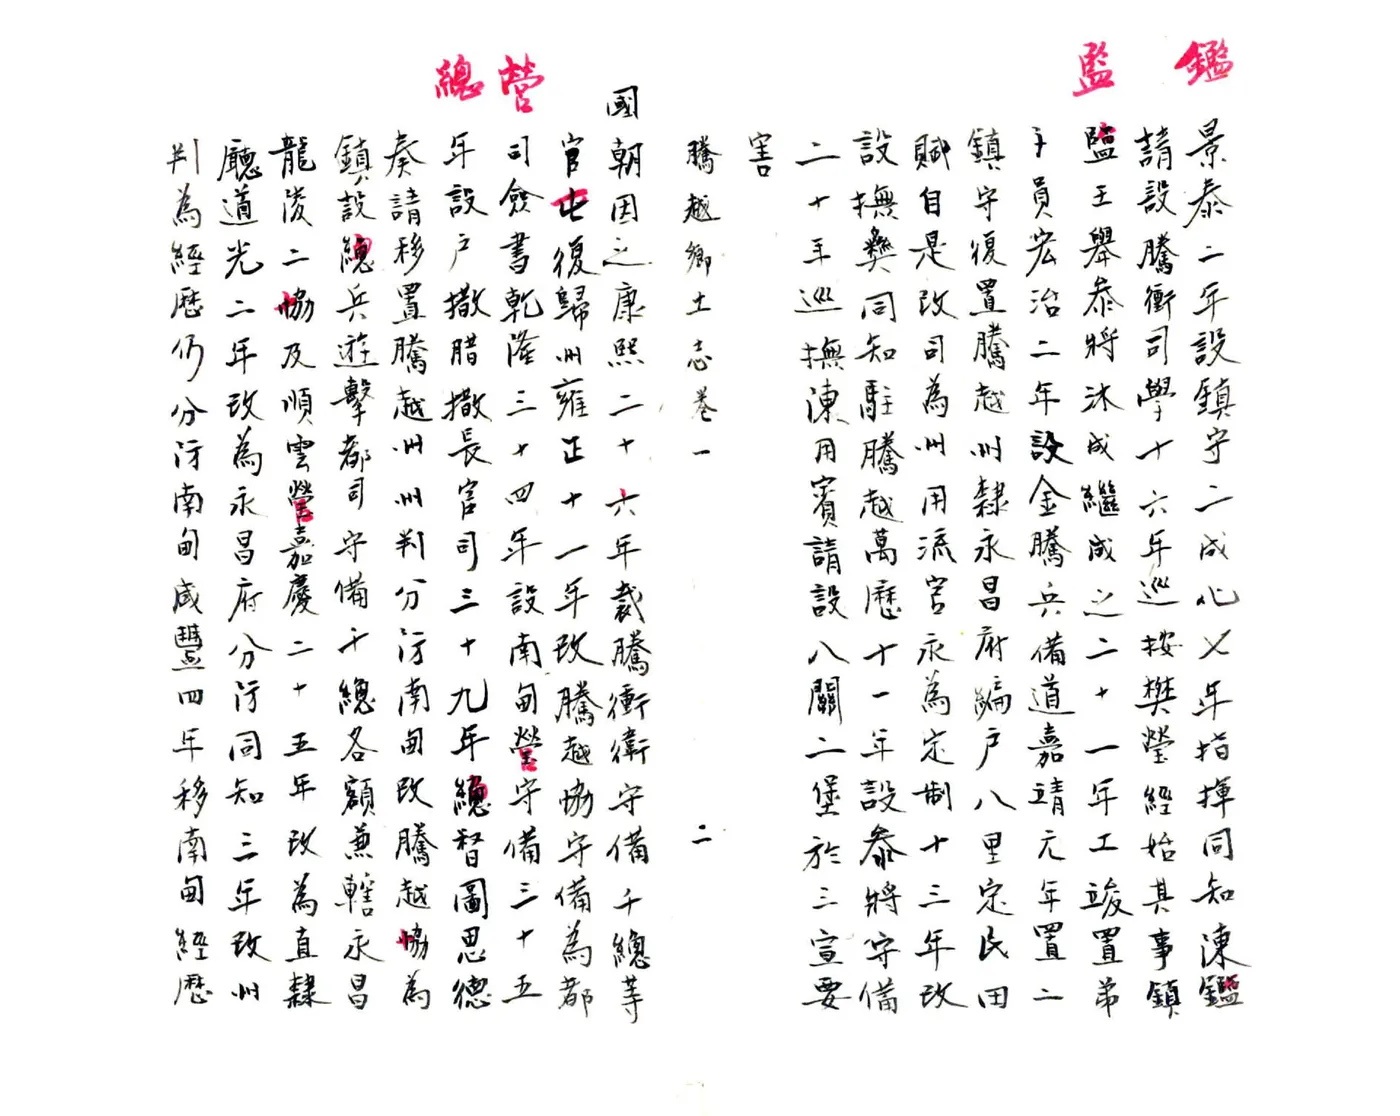 鑑
監
景泰二年設鎮守二成化七年指揮同知陳鑑
請設騰衝司學十六年巡按樊瑩經始其事鎮
監王舉叅將沐成繼成之二十一年工竣置弟
子員宏治二年設金騰兵備道嘉靖元年置二
鎮守復置騰越州隸永昌府編戶八里定民田
賦自是改司為州用流官永為定制十三年改
設撫彝同知駐騰越萬歷十一年設叅將守備
二十年巡撫陳用賓請設八關二堡於三宣要
害
騰越鄉土志卷一 二
營
總
國朝因之康熙二十六年裁騰衝衛守備千總等
官屯復歸州雍正十一年改騰越協守備為都
司僉書乾隆三十四年設南甸營守備三十五
年設戶撒腊撒長官司三十九年總督圖思德
奏請移置騰越州州判分汸南甸改騰越協為
鎮設總兵遊擊都司守備千總各額兼轄永昌
龍陵二協及順雲營嘉慶二十五年改為直隸
廳道光二年改為永昌府分汸同知三年改州
判為經歷仍分汸南甸咸豐四年移南甸經歷